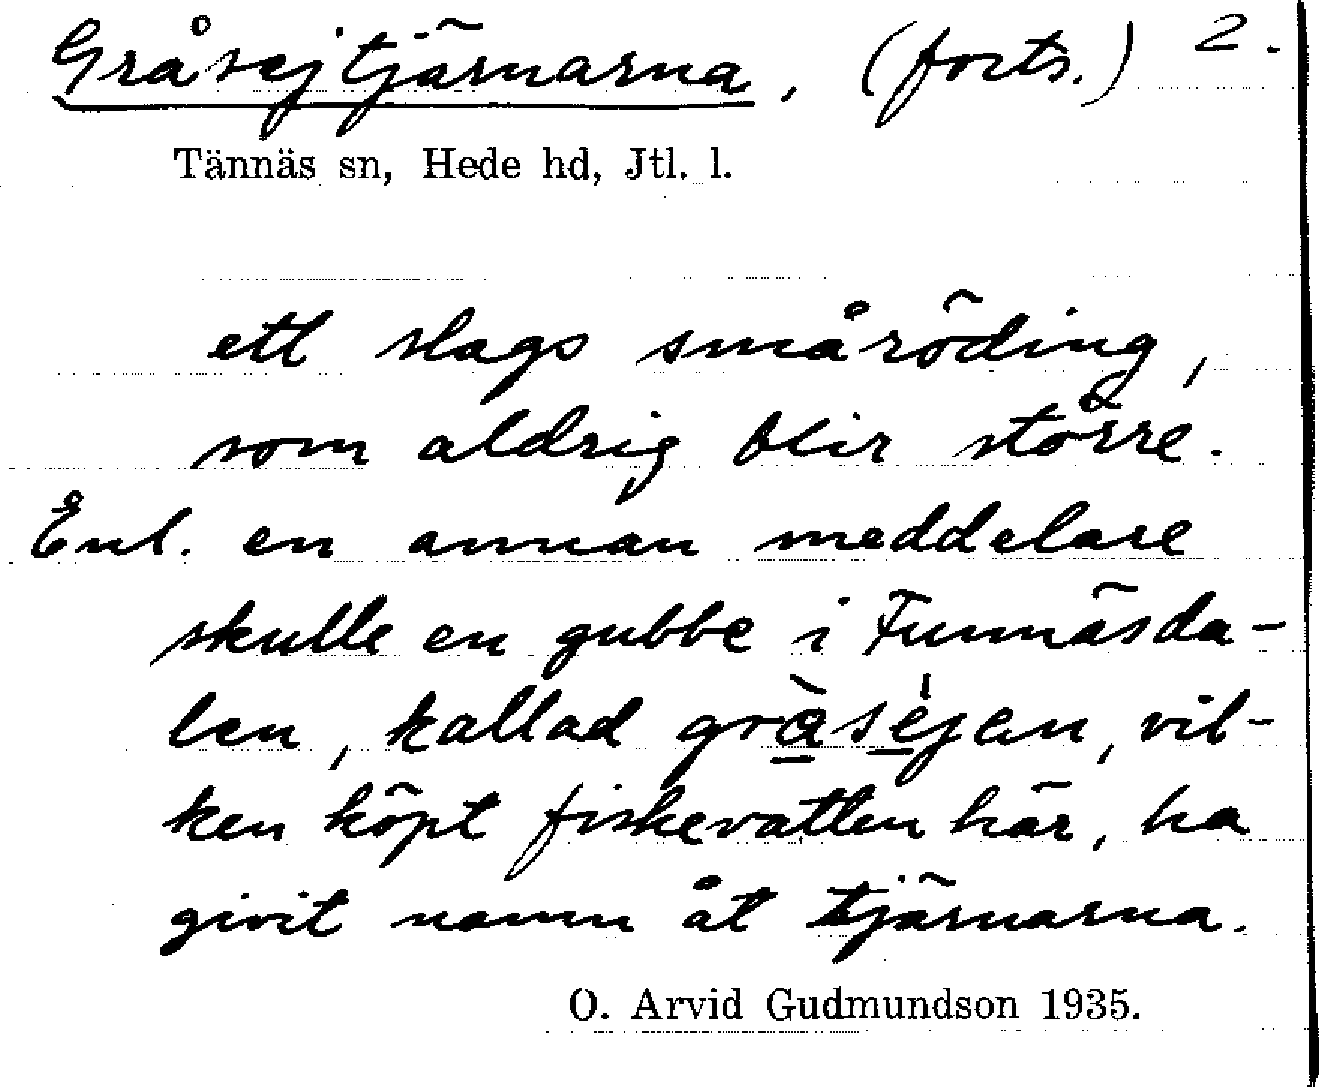 Gråsejtjärnarna, (forts.) 2.
Tännäs sn, Hede hd, Jtl. l.
ett slags småröding,
som aldrig blir större.
Enl. en annan meddelare
skulle en gubbe i Funnäsda-
len, kallad gràséjen, vil-
ken köpt fiskevatten här, ha
givit namn åt tjärnarna.
O. Arvid Gudmundson 1935.